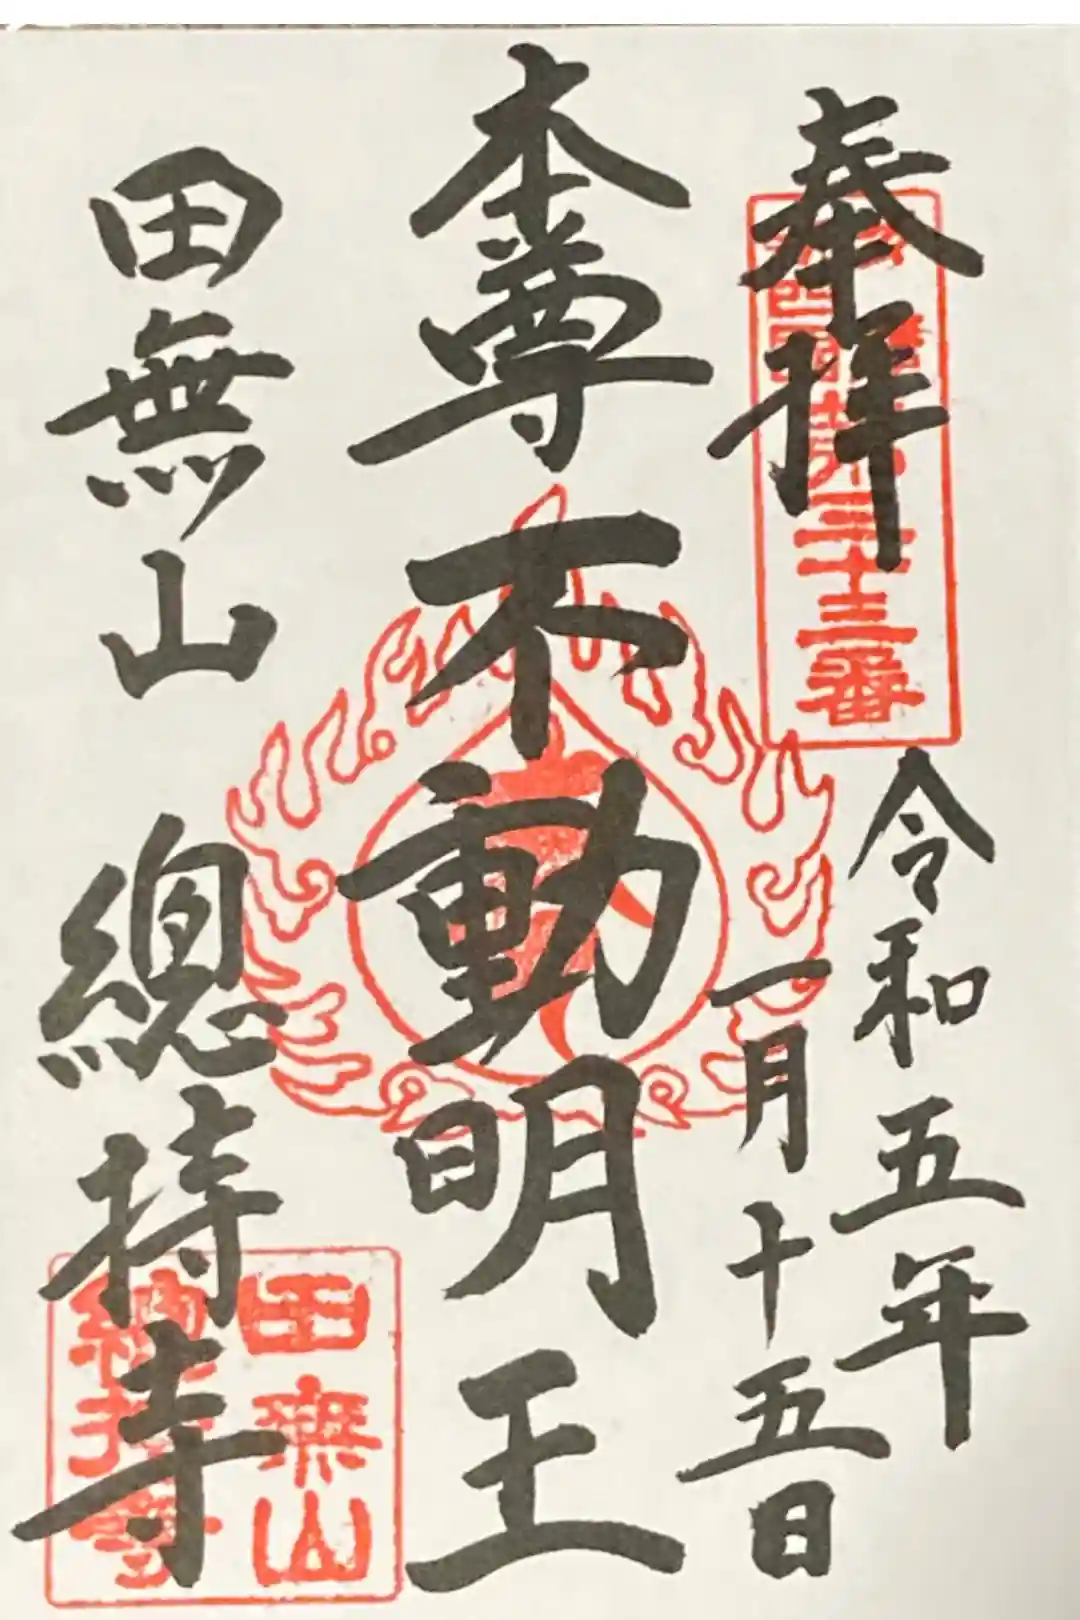 奉拝
第三十三番
令和五年
一月十五日
本尊不動明王
田無山 總持寺
田無山
總持寺